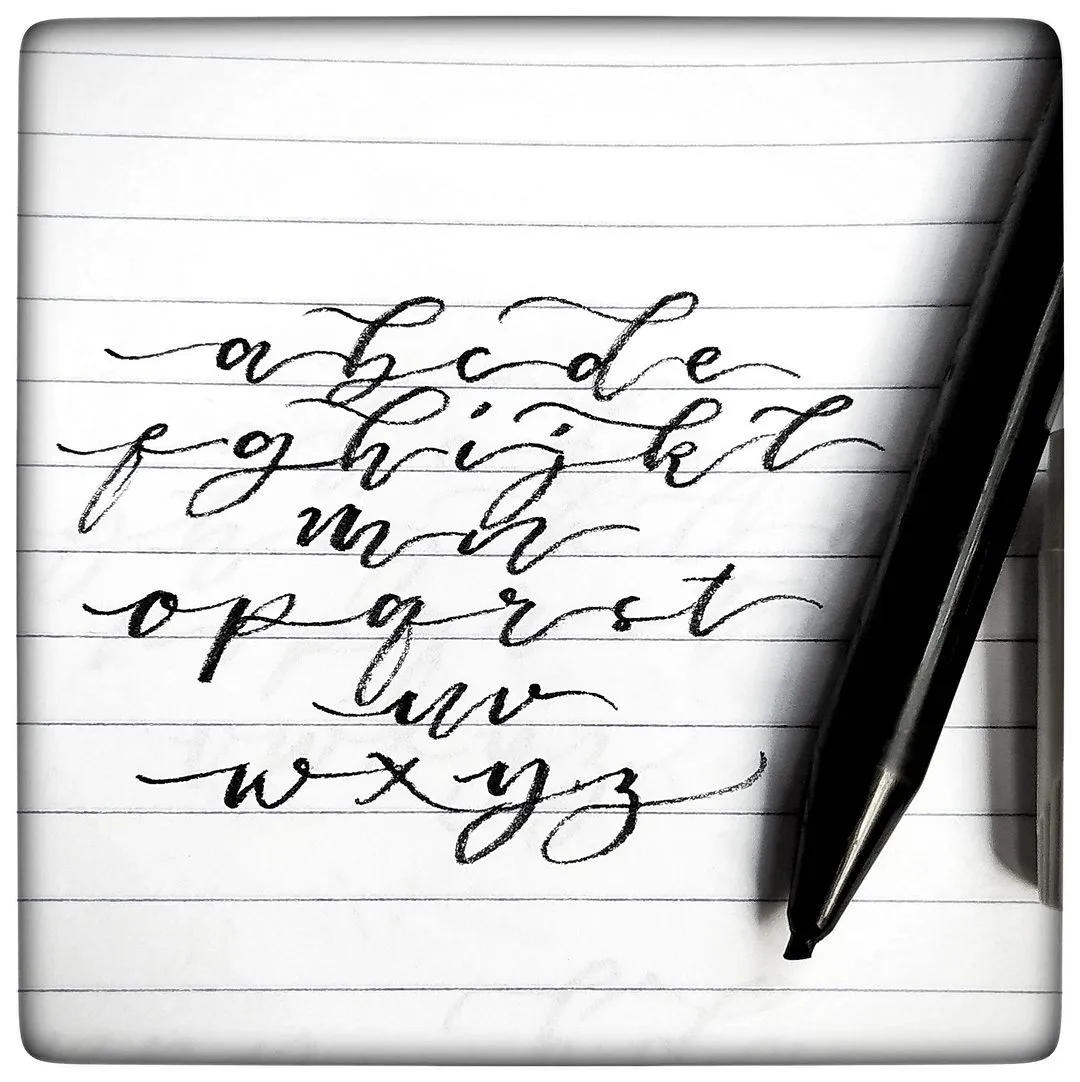 abcde
fghijkl
mn
opqrst
uv
wxyz